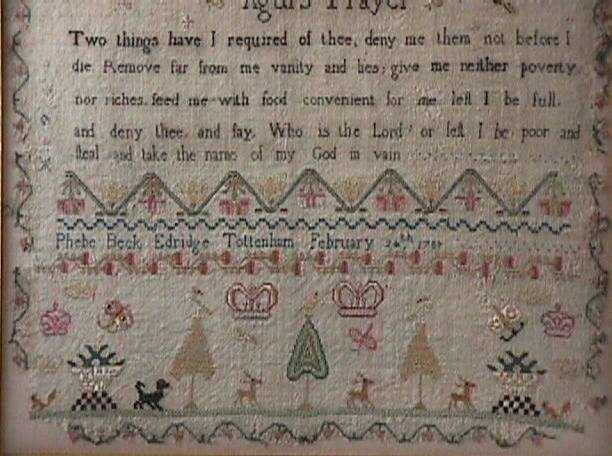 Agurs Prayer
Two things have I required of thee, deny me them not before I
die. Remove far from me vanity and lies; give me neither poverty
nor riches. feed me with food convenient for me left I be full.
and deny thee. and fay. Who is the Lord? or left I be poor and
fteal and take the name of my God in vain
Phebe Beck Edridge Tottenham February